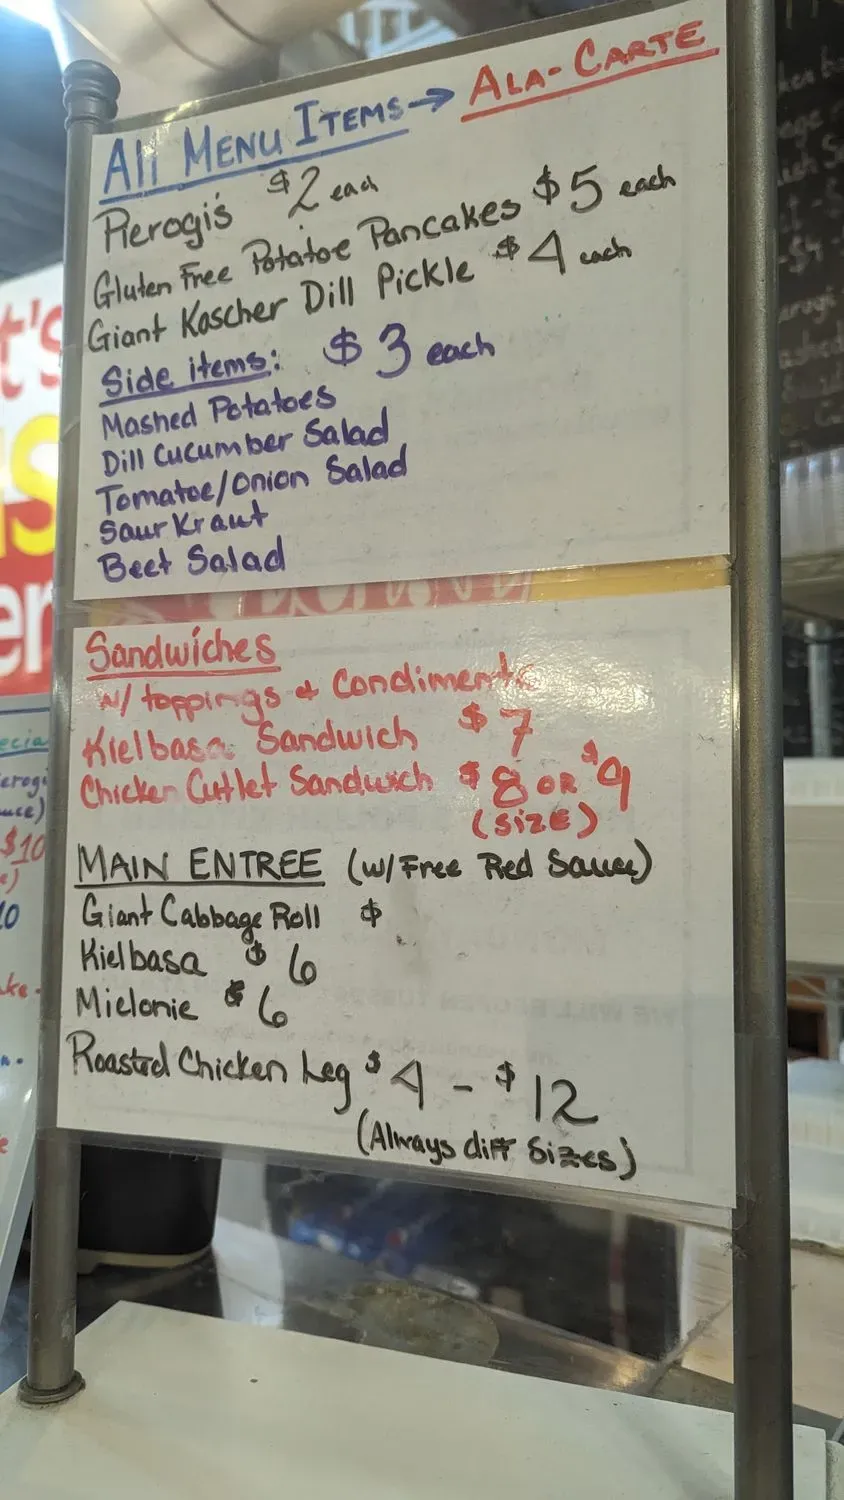 All MENU ITEMS → ALA-CARTE
Pierogi's $2 each
Gluten Free Potatoe Pancakes $5 each
Giant Koscher Dill Pickle $4 each
Side items: $3 each
Mashed Potatoes
Dill Cucumber Salad
Tomatoe/Onion Salad
Saur Kraut
Beet Salad
Sandwiches
w/ toppings & Condiments
Kielbasa Sandwich $7
Chicken Cutlet Sandwich $8 OR $9
(SIZE)
MAIN ENTREE (w/ Free Red Sauce)
Giant Cabbage Roll $
Kielbasa $6
Mielonie $6
Roasted Chicken Leg $4 - $12
(Always diff Sizes)
t's
er
$10